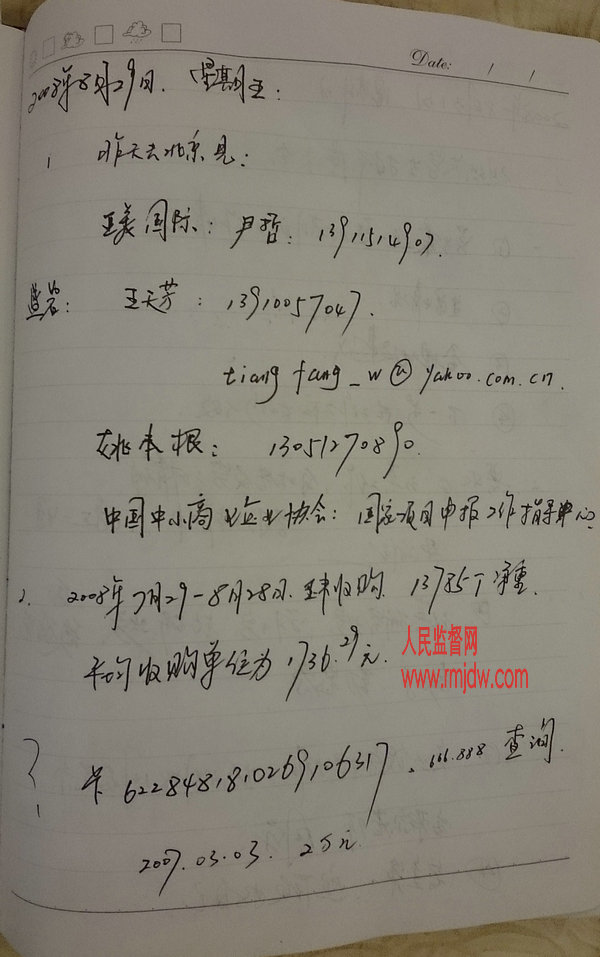 Date: / /
2008年8月29日. 星期五:
1 昨天去北京见:
王美国际: 尹哲: 13911514907.
监督: 王天芳: 13910057047.
tiang fang_w@yahoo.com.cn.
姚本根: 13051270890.
中国中小商业企业协会: 国家项目申报工作指导中心
2. 2008年7月29-8月28日. 收购 13785个 净重
平均收购单位为1736.29元.
人民监督网
www.rmjdw.com
卡 6228481810269106317. 666.888 查询.
2007.03.03. 2万元